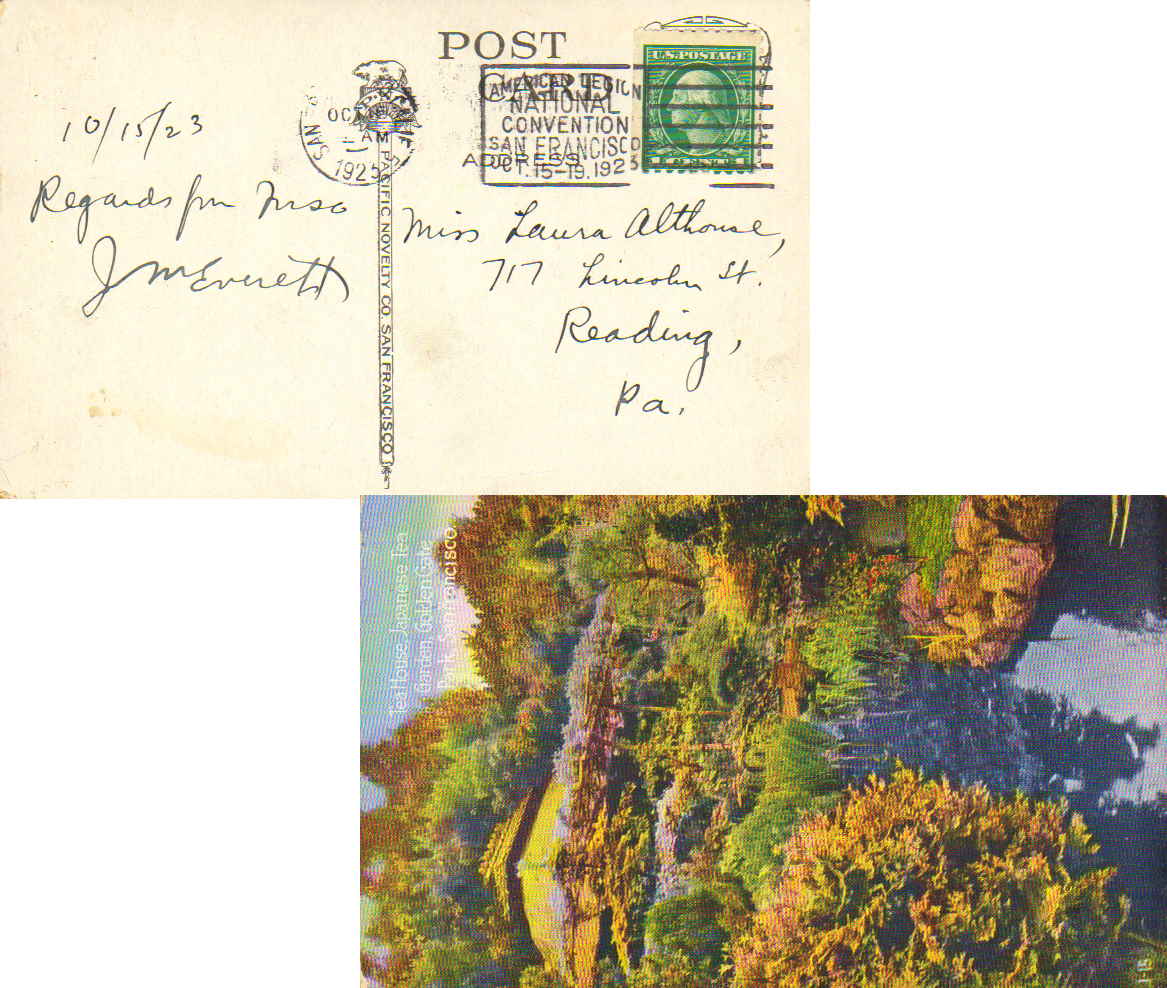 POST
CARD
ADDRESS
U.S. POSTAGE
AMERICAN LEGION
NATIONAL
CONVENTION
SAN FRANCISCO
OCT. 15-19. 1923
SAN
OCT
AM
192
10/15/23
Regards from
J M Everett
PACIFIC NOVELTY CO. SAN FRANCISCO
Miss Laura Althouse,
717 Lincoln St.
Reading,
Pa.
Tea House, Japanese Tea
Garden, Golden Gate
Park, San Francisco.